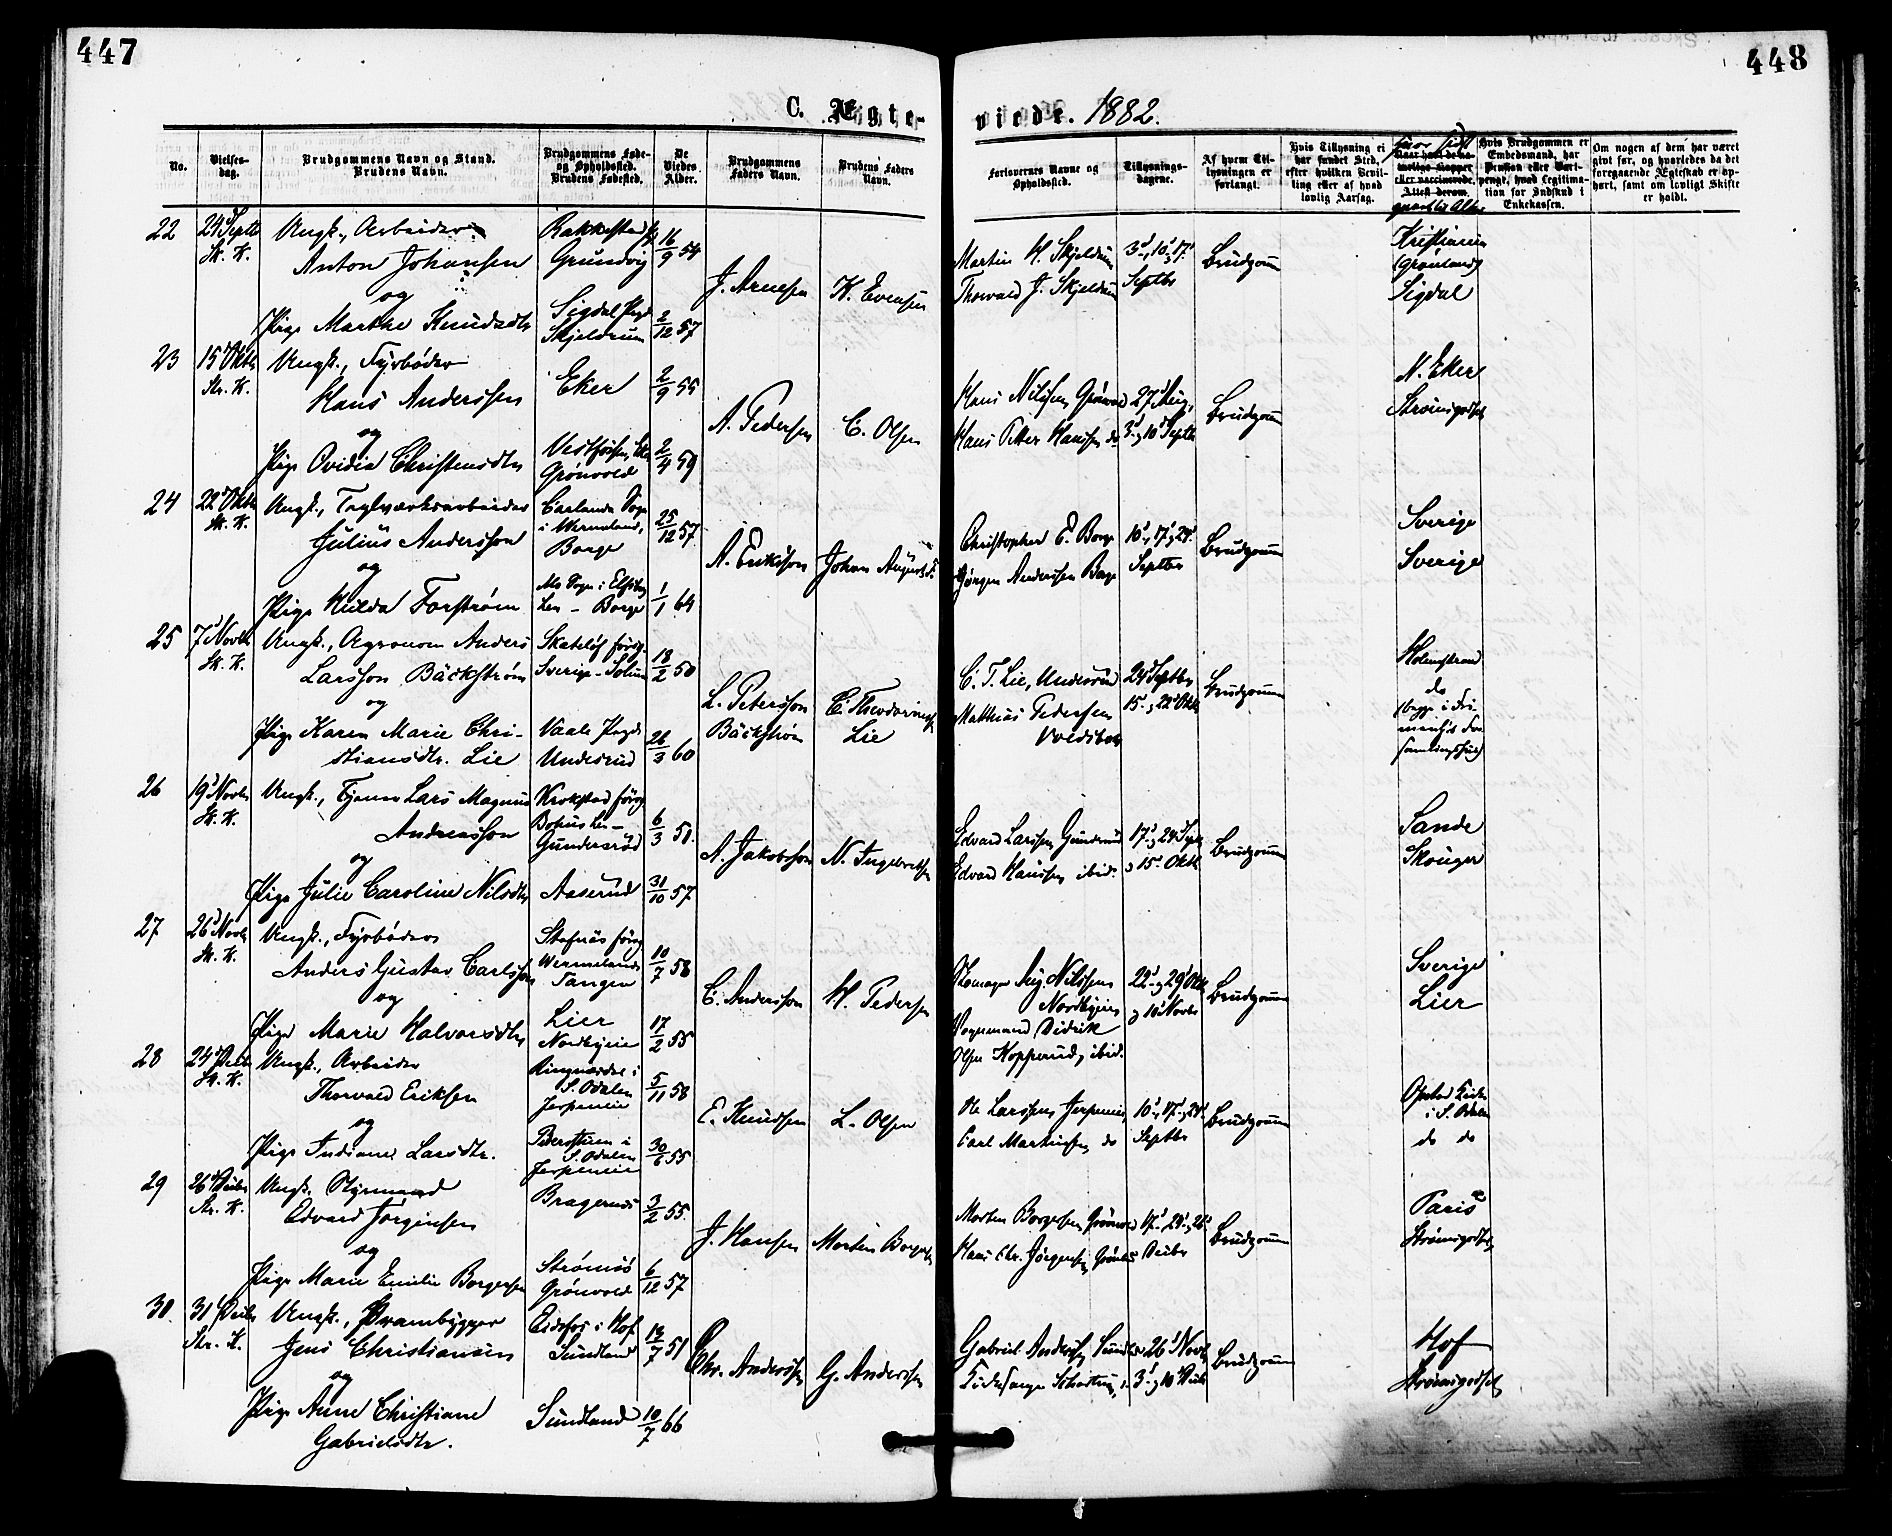 447
448
C. Ægte-
viede. 1882.
No.
Vielses-
dag.
Brudgommens Navn og Stand.
Brudens Navn.
Brudgommens Føde-
og Opholdssted.
Brudens Fødested.
De
Viedes
Alder.
Brudgommens
Faders Navn.
Brudens Faders
Navn.
Forlovernes Navne og
Opholdssted.
Tillysnings-
dagene.
Af hvem Til-
lysningen er
forlangt.
Hvis Tillysning ei
har fundet Sted,
efter hvilken Bevil-
ling eller af hvad
lovlig Aarsag.
Naar havt de na-
turlige Kopper
eller vaccinerede.
Attest derom.
Hvis Brudgommen er
Embedsmand, har
Pension eller Vart-
penge, hvad Legitima-
tion for Indskud i
Enkekassen.
Om nogen af dem har været
givt før, og hvorledes da det
foregaaende Ægteskab er op-
hørt, samt om lovligt Skifte
er holdt.
22
24' Septbr
St. K.
Ungk., Arbeider
Anton Johansen
og
Pige Marthe Knudsdtr
Rakkestad
Grundvig
Sigdal Prgd
Skjeldrum
16/9 54
2/12 57
J. Arnesen
K. Evensen
Martin H. Skjeldrum
Thorvald J. Skjeldrum
3', 10' 17'
Septbr
Brudgom
Kristiania
(Grønland)
Sigdal
23
15' Oktbr
Str. K.
Ungk., Fyrbøder
Hans Anderssen
og
Pige Ovidia Christensdtr
Eker
Vestfossen, Eker
Grønvold
2/9 55
2/4 59
A. Pedersen
C. Olsen
Hans Nilssen Grønvold
Hans Petter Hanssen do
27' Aug,
3' og 10' Septbr
Brudgom
N. Eker
Strømsgodset
24
22' Oktbr
St. K.
Ungk., Teglværksarbeider
Julius Andersson
og
Pige Hulda Forstrøm
Carlanda Sogn
i Wermeland,
Borge
Sogn i Elfsborg
Len - Borge
25/12 57
1/1 64
A. Eriksson
Johan August F.
Christopher E. Borge
Jørgen Anderssen Borge
10', 17', 24'
Septbr
Brudgom
Sverige
Sverige
25
7' Novbr
St. K.
Ungk., Agronom Anders
Larsson Bäckstrøm
og
Pige Karen Marie Chri-
stiansdtr. Lie
Skateløfförsg.
Sverige - Solum
Vaale Prgd
Underrud
18/2 50
26/3 60
L. Petersson
Bäckstrøm
C. Theodorinss
Lie
C. T. Lie, Underrud
Matthias Pedersen
24' Septbr
15', 22' Oktbr
Brudgom
Holmestrand
do
26
19' Novbr
St. K.
Ungk., Tjener Lars Magnus
Andreasson
og
Pige Julie Caroline Nilsdtr
Krokstad försg
Bohus Len -
Gundersrød
Aaserud
6/3 51.
31/10 57
A. Jakobsson
N. Ingebretsen
Edvard Larssen Gundersrud
Edvard Hanssen ibid.
17' og 24' Septb
og 15' Oktb
Brudgom
Sande
Skouger
27
26' Novbr
St. K.
Ungk., Fyrbøder
Anders Gustav Carlsson
og
Pige Marie Halvorsdtr
Stafnäs försg
Wermeland
Tangen
Lier
Nordbyeie
10/7 58
17/2 55
C. Andersson
H. Pedersen
Skomager Aug. Nilssen
Nordbyeie
Vognmand Didrik
Olsen Kopperud, ibid.
22' og 29' Oktb
og 10' Novbr
Brudgom
Sverige
Lier
28
24' Decbr
St. K.
Ungk., Arbeider
Thorvald Eriksen
og
Pige Indiane Larsdtr.
i
S. Odalen
Jerpeneie
i
S. Odalen
Jerpeneie
5/11 58
30/6 55
E. Knudsen
L. Olsen
Ole Larssen Jerpeneie,
Carl Martinsen do
10', 17', 24'
Septbr
Brudgom
i S. Odalen
do do
29
26' Decbr
Str. K.
Ungk. Styrmand
Edvard Jørgensen
og
Pige Marie Emilie Borgersen
Bragernes
Strømsø
Grønvold
3/2 55.
6/12 57
J. Hansen
Morten Borgersen
Morten Borgersen, Grønvold
Hans Chr. Jørgensen, Grønvold
17', 24', 26'
Decbr
Brudgom
Paris
Strømsgodset
30.
31' Decbr
Str. K.
Ungk., Prambygger
Jens Christiansen
og
Pige Anne Christiane
Gabrielsdtr.
Eidsfos i Hof
Sundland
Sundland
13/7 51
10/7 66
Chr. Anderssen
G. Anderssen
Gabriel Anderssen, Sundland
26' Novb
3' og 10' Decb
Brudgom
Hof
Strømsgodset